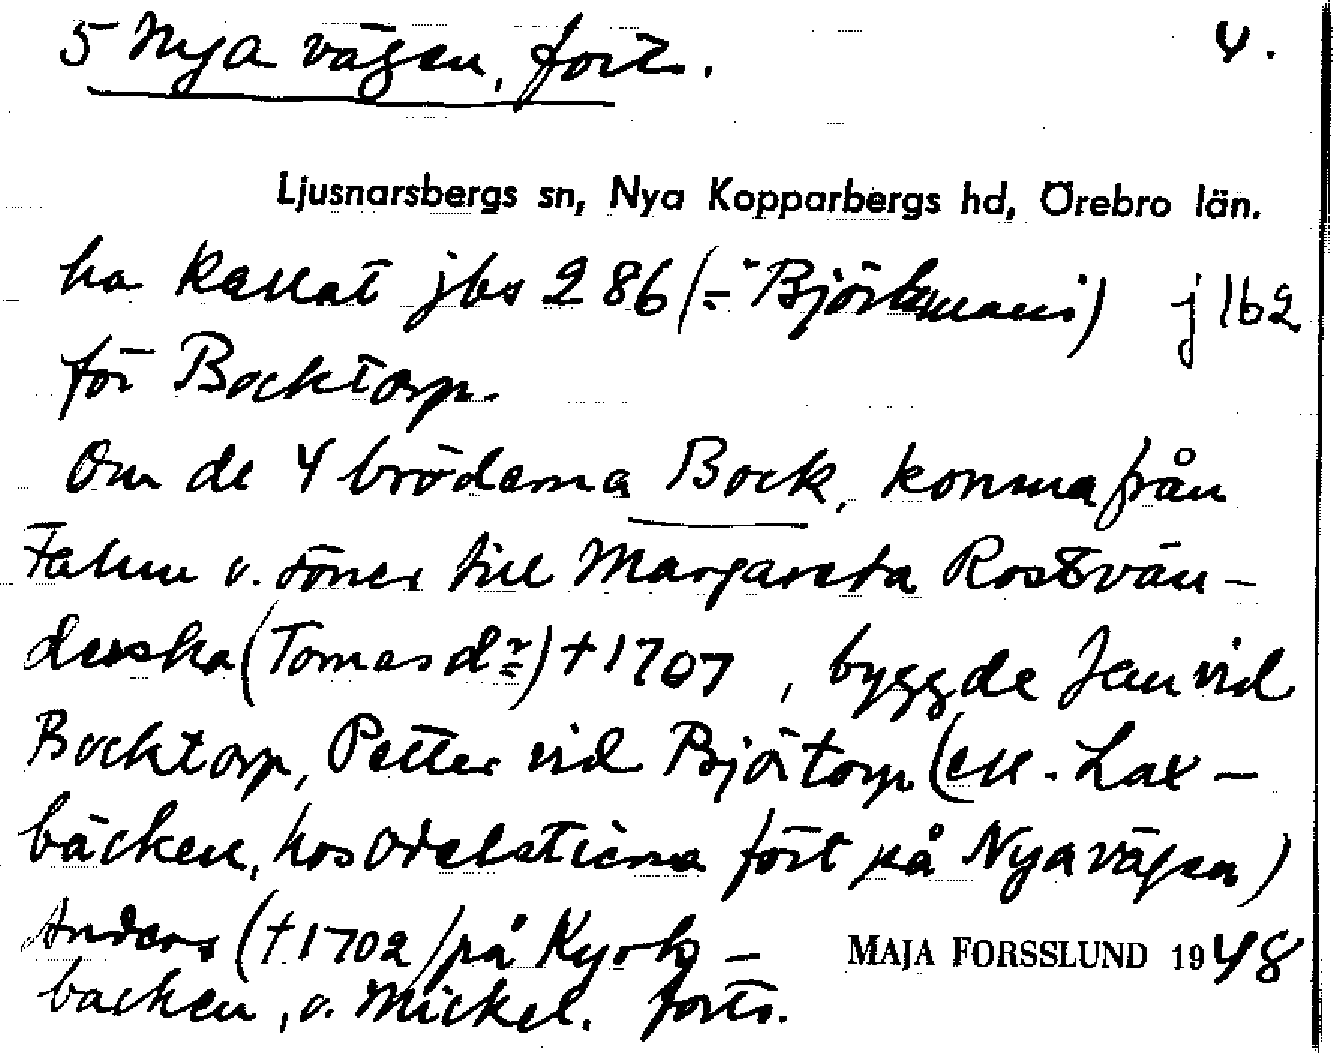 5 Nya vägen, fort. 4.
Ljusnarsbergs sn, Nya Kopparbergs hd, Örebro län.
ha kallat jbs 286 (= Björkmans) j 162
för Bocktorp.
Om de 4 bröderna Bock, komna från
Falun o. söner till Margareta Rostvän-
derska (Tomasdr) † 1707, byggde Jan vid
Bocktorp, Petter vid Björtorp (ell. Lax-
bäcken, hos fört på Nya vägen)
Anders († 1702) på Kyrk-
backen, o. Mickel. forts.
MAJA FORSSLUND 1948